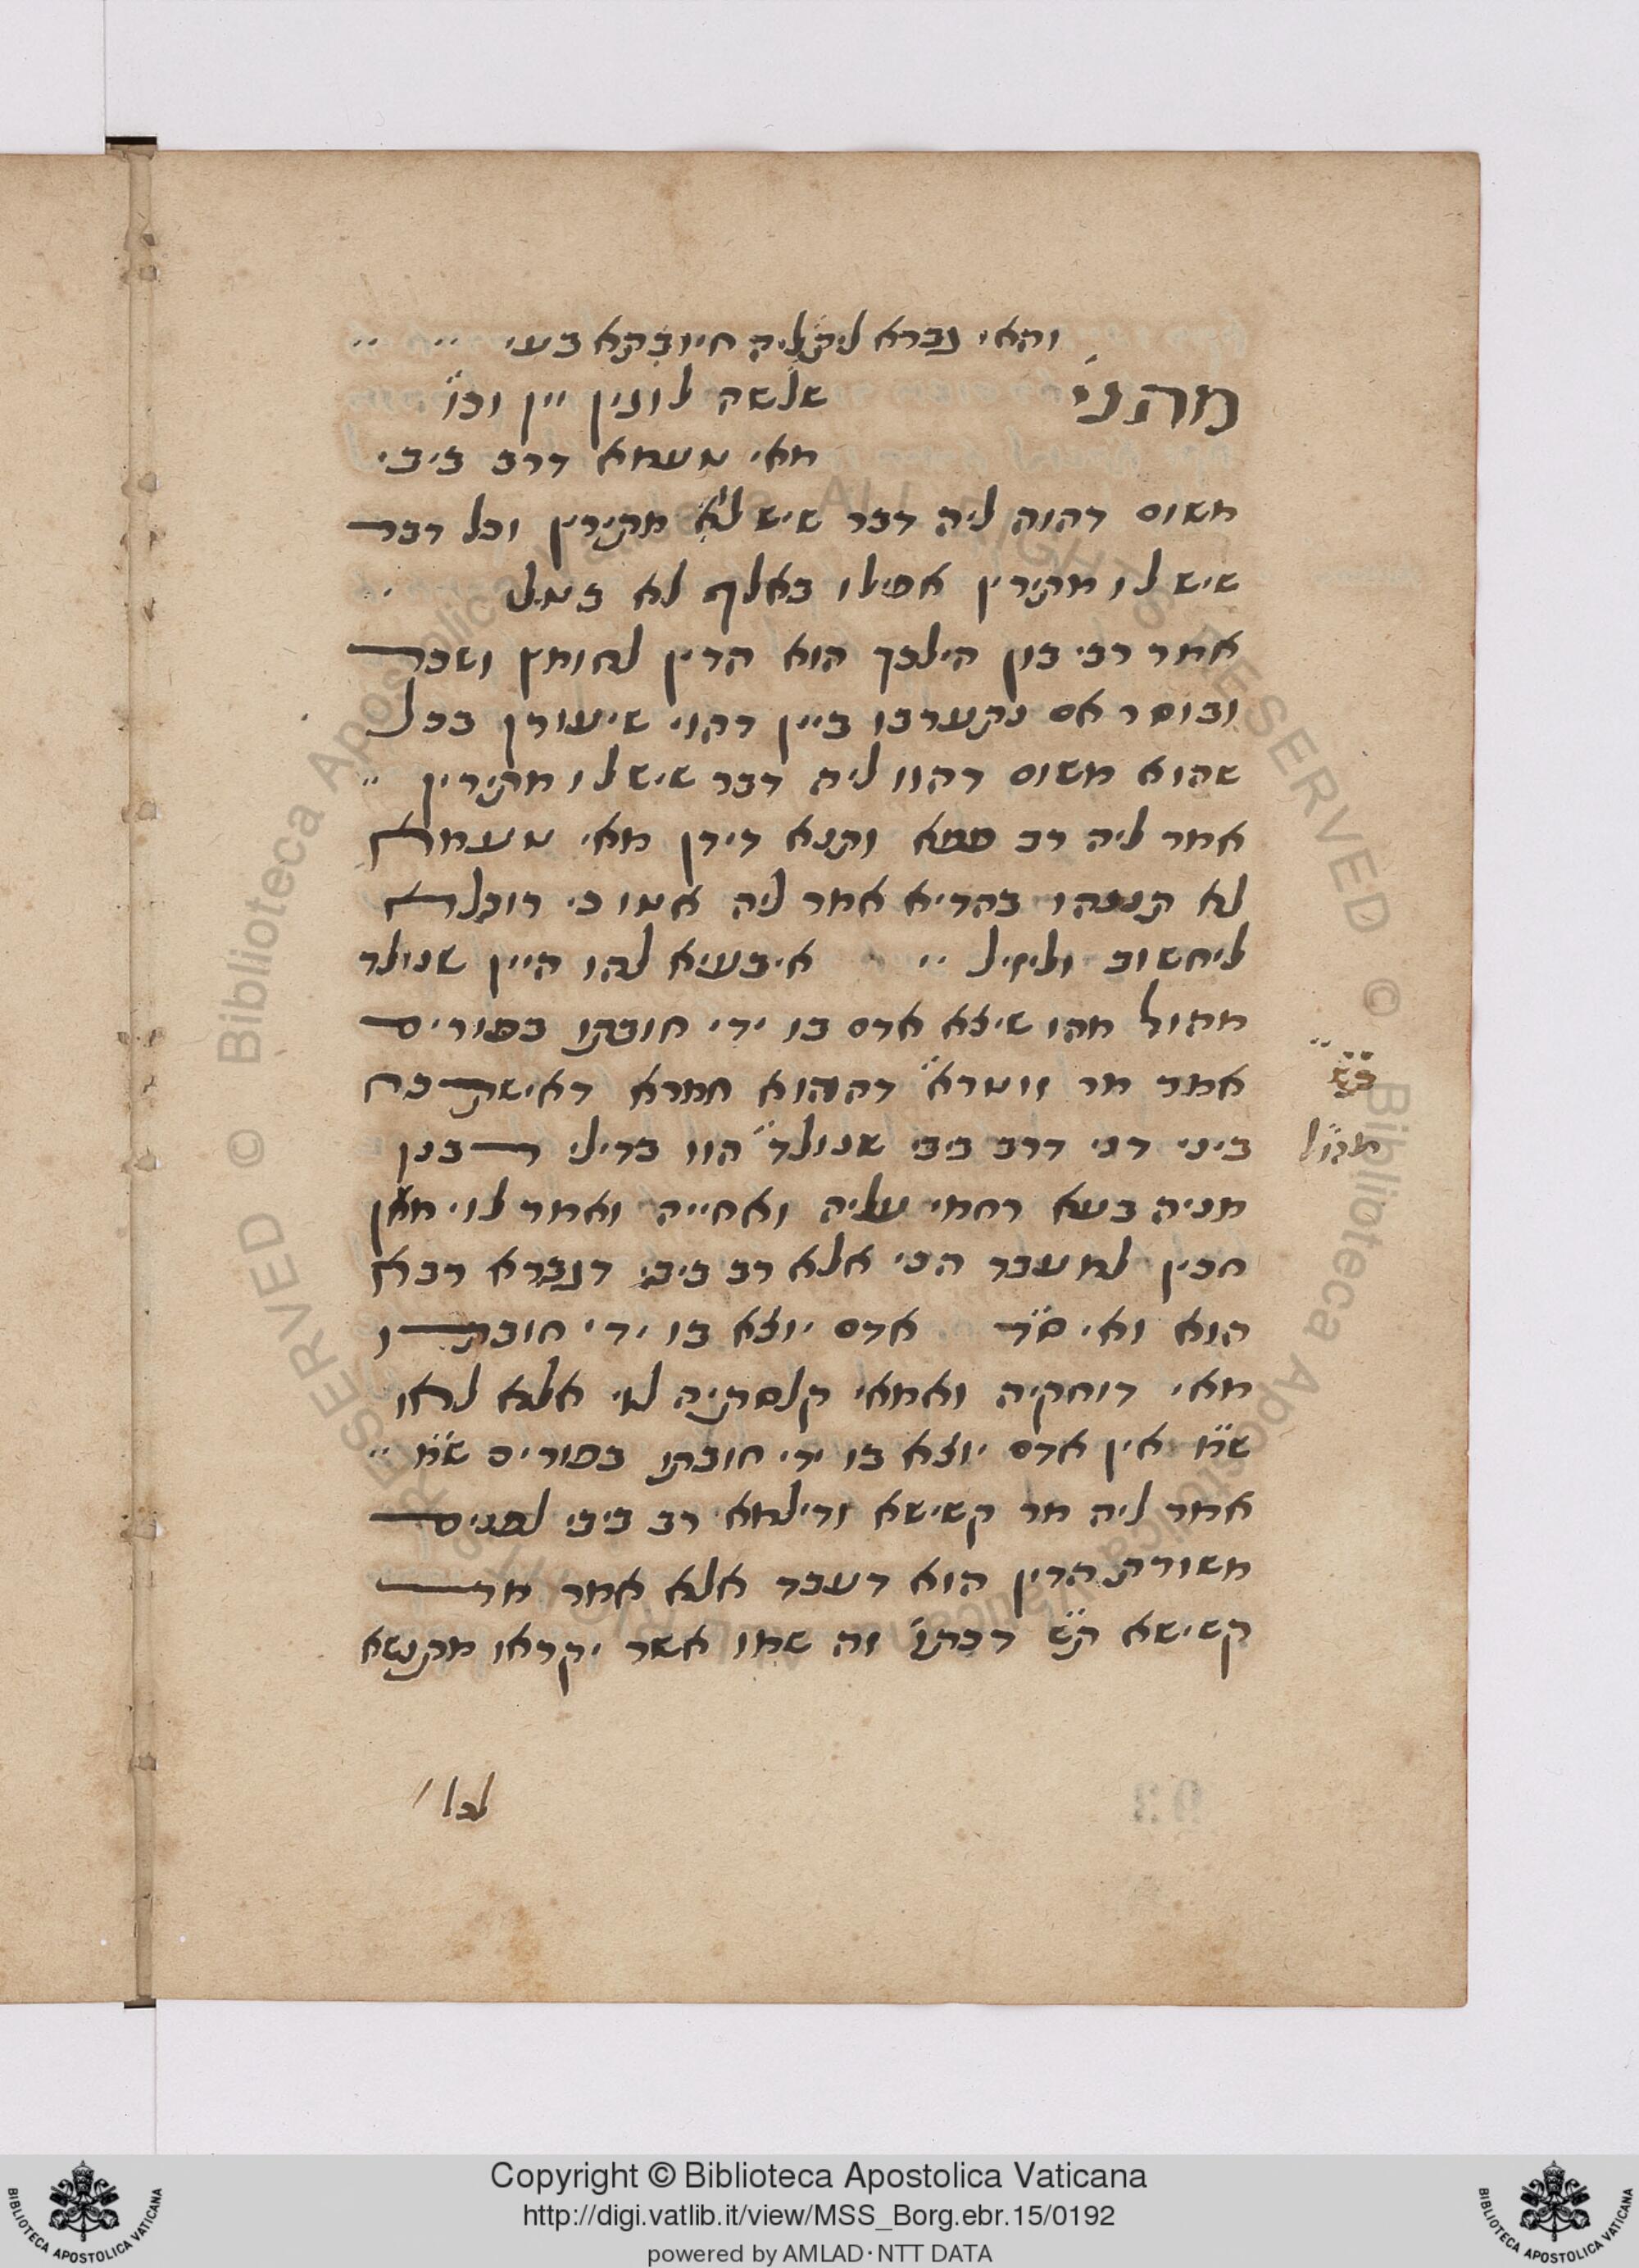 והאי גברא ליתליה תיובתא בעי
מתני׳ שלשה לוגין יין וכו׳
מאי טעמא דרב ביבי
משום דהוה ליה דבר שיש לו מתירין וכל דבר
שיש לו מתירין אפילו באלף לא בטל
אמר רבי בון הילכך הוא הדין לחומץ ושכר
ובוסר אם נתערבו ביין דהוי שיעורן בכל
שהוא משום דהוו ליה דבר שיש לו מתירין
אמר ליה רב פפא ותנא דידן מאי טעמא
לא תננהו בהדיא אמר ליה אטו כי רוכלא
ליחשוב וליזיל איבעיא להו היין שנולד
מהול מהו שיצא אדם בו ידי חובתו בפורים
אמר מר זוטרא דההוא חמרא דאישתכח
ביני דני דרב ביבי שנולד הוו בדילי רבנן
מניה בעא רחמי עליה ואחייה ואמר לוי מאן
חכין למעבד הכי אלא רב ביבי דגברא רבא
הוא ואי ס״ד אדם יוצא בו ידי חובתו
מאי דוחקיה ואמאי קלסתיה לוי אלא לאו
ש״מ אין אדם יוצא בו ידי חובתו בפורים ש״מ
אמר ליה מר קשישא ודילמא רב ביבי לפנים
משורת הדין הוא דעבד אלא אמר מר
קשישא ת״ש דכתי׳ וזה שמו אשר יקראו מתנשא
מהול
לכל
Copyright © Biblioteca Apostolica Vaticana
http://digi.vatlib.it/view/MSS_Borg.ebr.15/0192
powered by AMLAD · NTT DATA